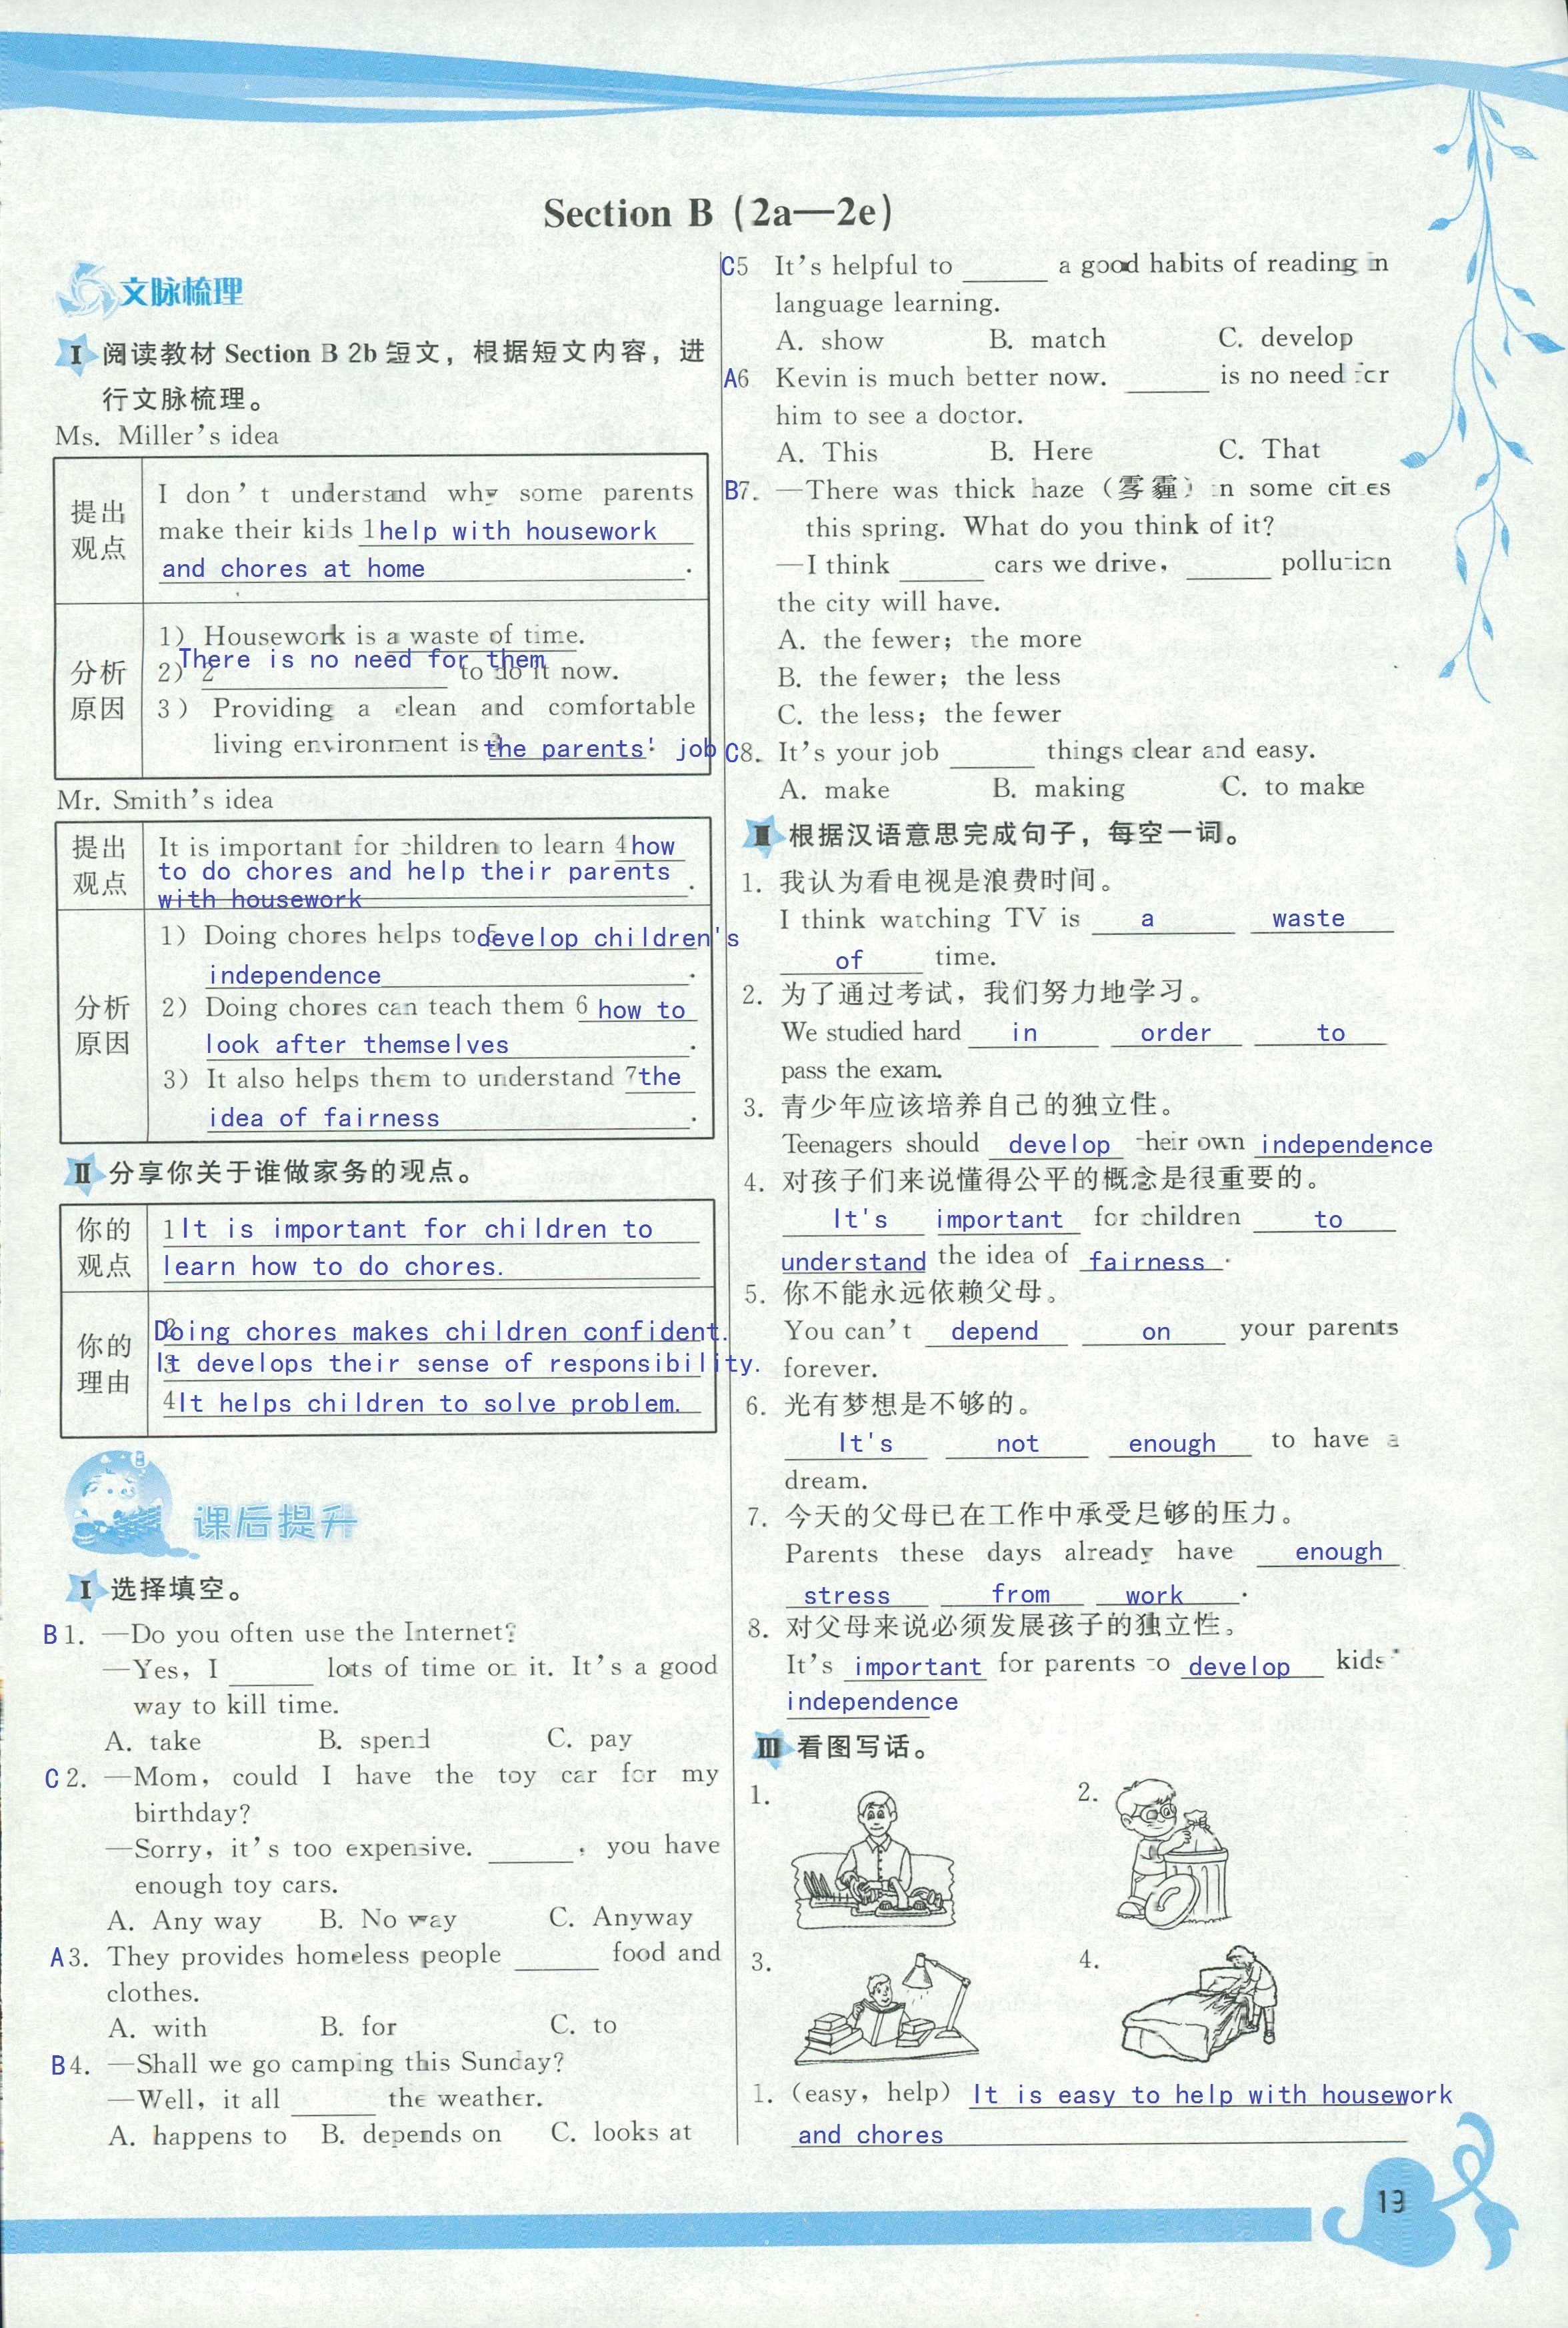 Section B (2a—2e)
文脉梳理
Ⅰ 阅读教材 Section B 2b 短文，根据短文内容，进
行文脉梳理。
Ms. Miller's idea
提出
观点
I don't understand why some parents
make their kids 1 help with housework
and chores at home.
分析
原因
1) Housework is a waste of time.
2) 2 There is no need for them to do it now.
3) Providing a clean and comfortable
living environment is 3 the parents' job.
Mr. Smith's idea
提出
观点
It is important for children to learn 4 how
to do chores and help their parents
with housework.
分析
原因
1) Doing chores helps to 5 develop children's
independence.
2) Doing chores can teach them 6 how to
look after themselves.
3) It also helps them to understand 7 the
idea of fairness.
Ⅱ 分享你关于谁做家务的观点。
你的
观点
1 It is important for children to
learn how to do chores.
你的
理由
2 Doing chores makes children confident.
3 It develops their sense of responsibility.
4 It helps children to solve problem.
课后提升
Ⅰ 选择填空。
B 1. —Do you often use the Internet?
—Yes, I ______ lots of time on it. It's a good
way to kill time.
A. take B. spend C. pay
C 2. —Mom, could I have the toy car for my
birthday?
—Sorry, it's too expensive. ______, you have
enough toy cars.
A. Any way B. No way C. Anyway
A 3. They provides homeless people ______ food and
clothes.
A. with B. for C. to
B 4. —Shall we go camping this Sunday?
—Well, it all ______ the weather.
A. happens to B. depends on C. looks at
C 5 It's helpful to ______ a good habits of reading in
language learning.
A. show B. match C. develop
A 6 Kevin is much better now. ______ is no need for
him to see a doctor.
A. This B. Here C. That
B 7. —There was thick haze (雾霾) in some cities
this spring. What do you think of it?
—I think ______ cars we drive, ______ pollution
the city will have.
A. the fewer; the more
B. the fewer; the less
C. the less; the fewer
C 8. It's your job ______ things clear and easy.
A. make B. making C. to make
Ⅱ 根据汉语意思完成句子，每空一词。
1. 我认为看电视是浪费时间。
I think watching TV is a waste
of time.
2. 为了通过考试，我们努力地学习。
We studied hard in order to
pass the exam.
3. 青少年应该培养自己的独立性。
Teenagers should develop their own independence.
4. 对孩子们来说懂得公平的概念是很重要的。
It's important for children to
understand the idea of fairness.
5. 你不能永远依赖父母。
You can't depend on your parents
forever.
6. 光有梦想是不够的。
It's not enough to have a
dream.
7. 今天的父母已在工作中承受足够的压力。
Parents these days already have enough
stress from work.
8. 对父母来说必须发展孩子的独立性。
It's important for parents to develop kids'
independence.
Ⅲ 看图写话。
1.
2.
3.
4.
1. (easy, help) It is easy to help with housework
and chores
13